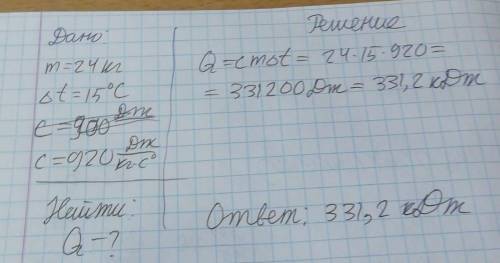 Дано:
m=24 кг
Δt=15°C
c=920 Дж/кг·c°
Найти:
Q-?
Решение
Q=cmΔt= 24·15·920=
= 331200 Дж= 331,2 кДж
Ответ: 331,2 кДж